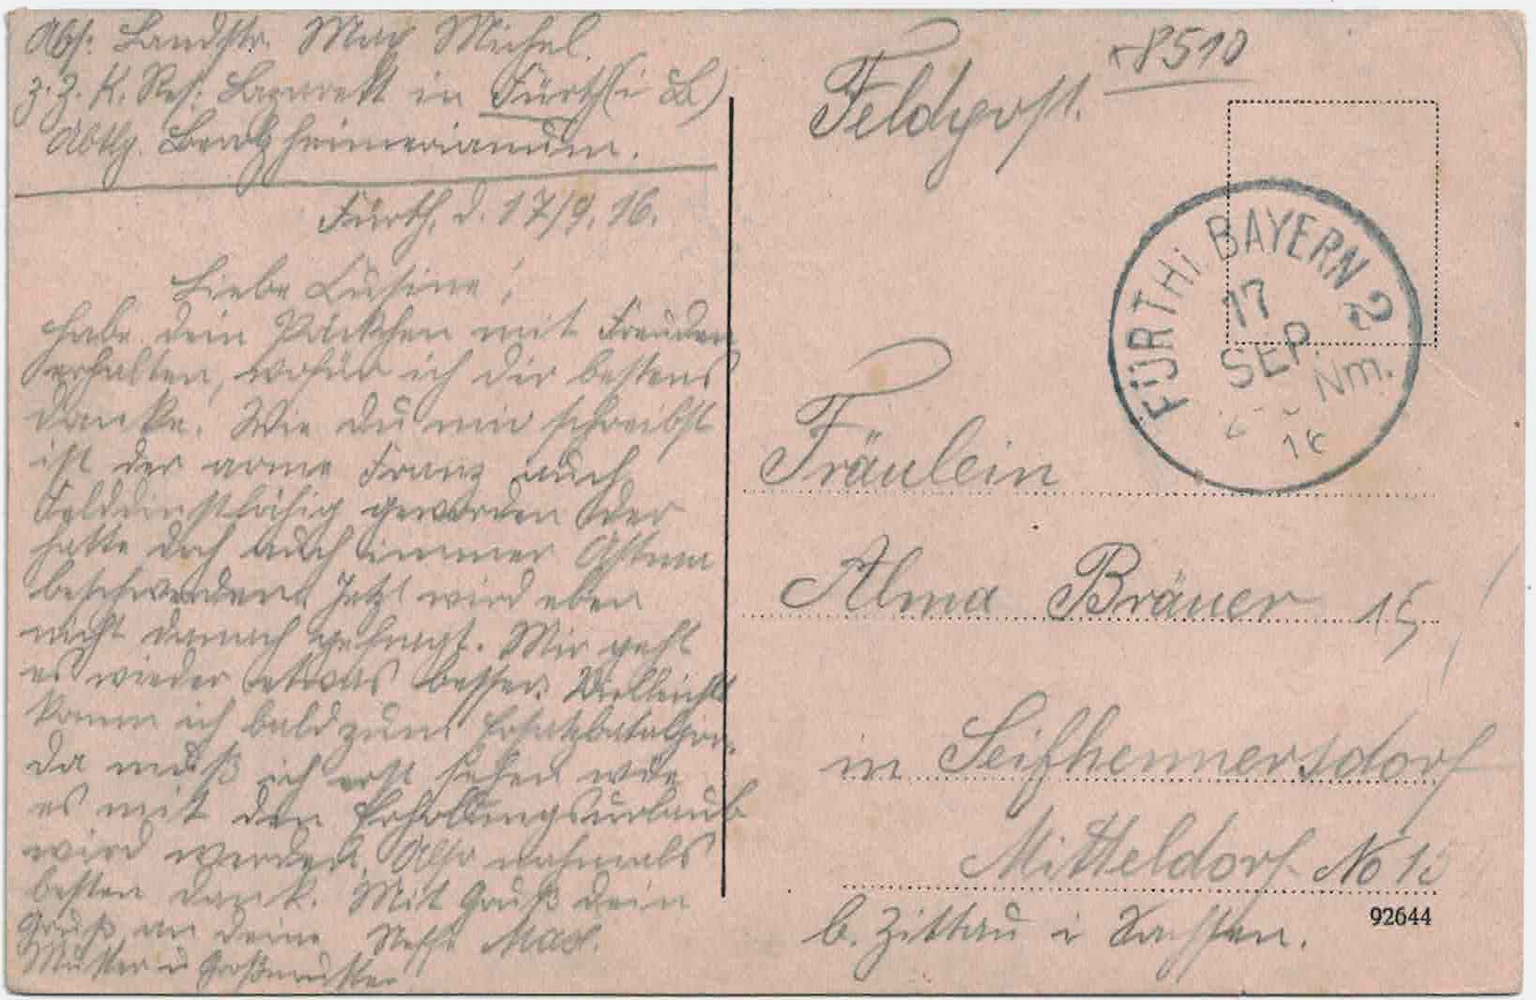 Abs: Landstr. Max Michel
z. Z. K. Res. Lazarett in Fürth (i B.)
Abtlg. Berolzheimerianum.
Fürth, d. 17/9. 16.
Liebe Cusine!
habe dein Päckchen mit Freuden
erhalten, wofür ich dir bestens
danke. Wie du mir schreibst
ist der arme Franz auch
Felddienstfähig geworden der
hatte doch auch immer Astma
beschwerden. Jetzt wird eben
nicht danach gefragt. Mir geht
es wieder etwas besser. Vielleicht
komm ich bald zum Ersatzbatalion.
da muß ich erst sehen wie
es mit den Erholungsurlaub
wird werden. Also nochmals
besten dank. Mit Gruß dein
Gruß an deine Neffe Max.
Mutter u Großmutter
Feldpost.
8510
FÜRTH i. BAYERN 2
17
SEP.
Nm.
16
Fräulein
Alma Bräuer 15
in Seifhennersdorf
Mitteldorf No 15
b. Zittau i Sachsen.
92644